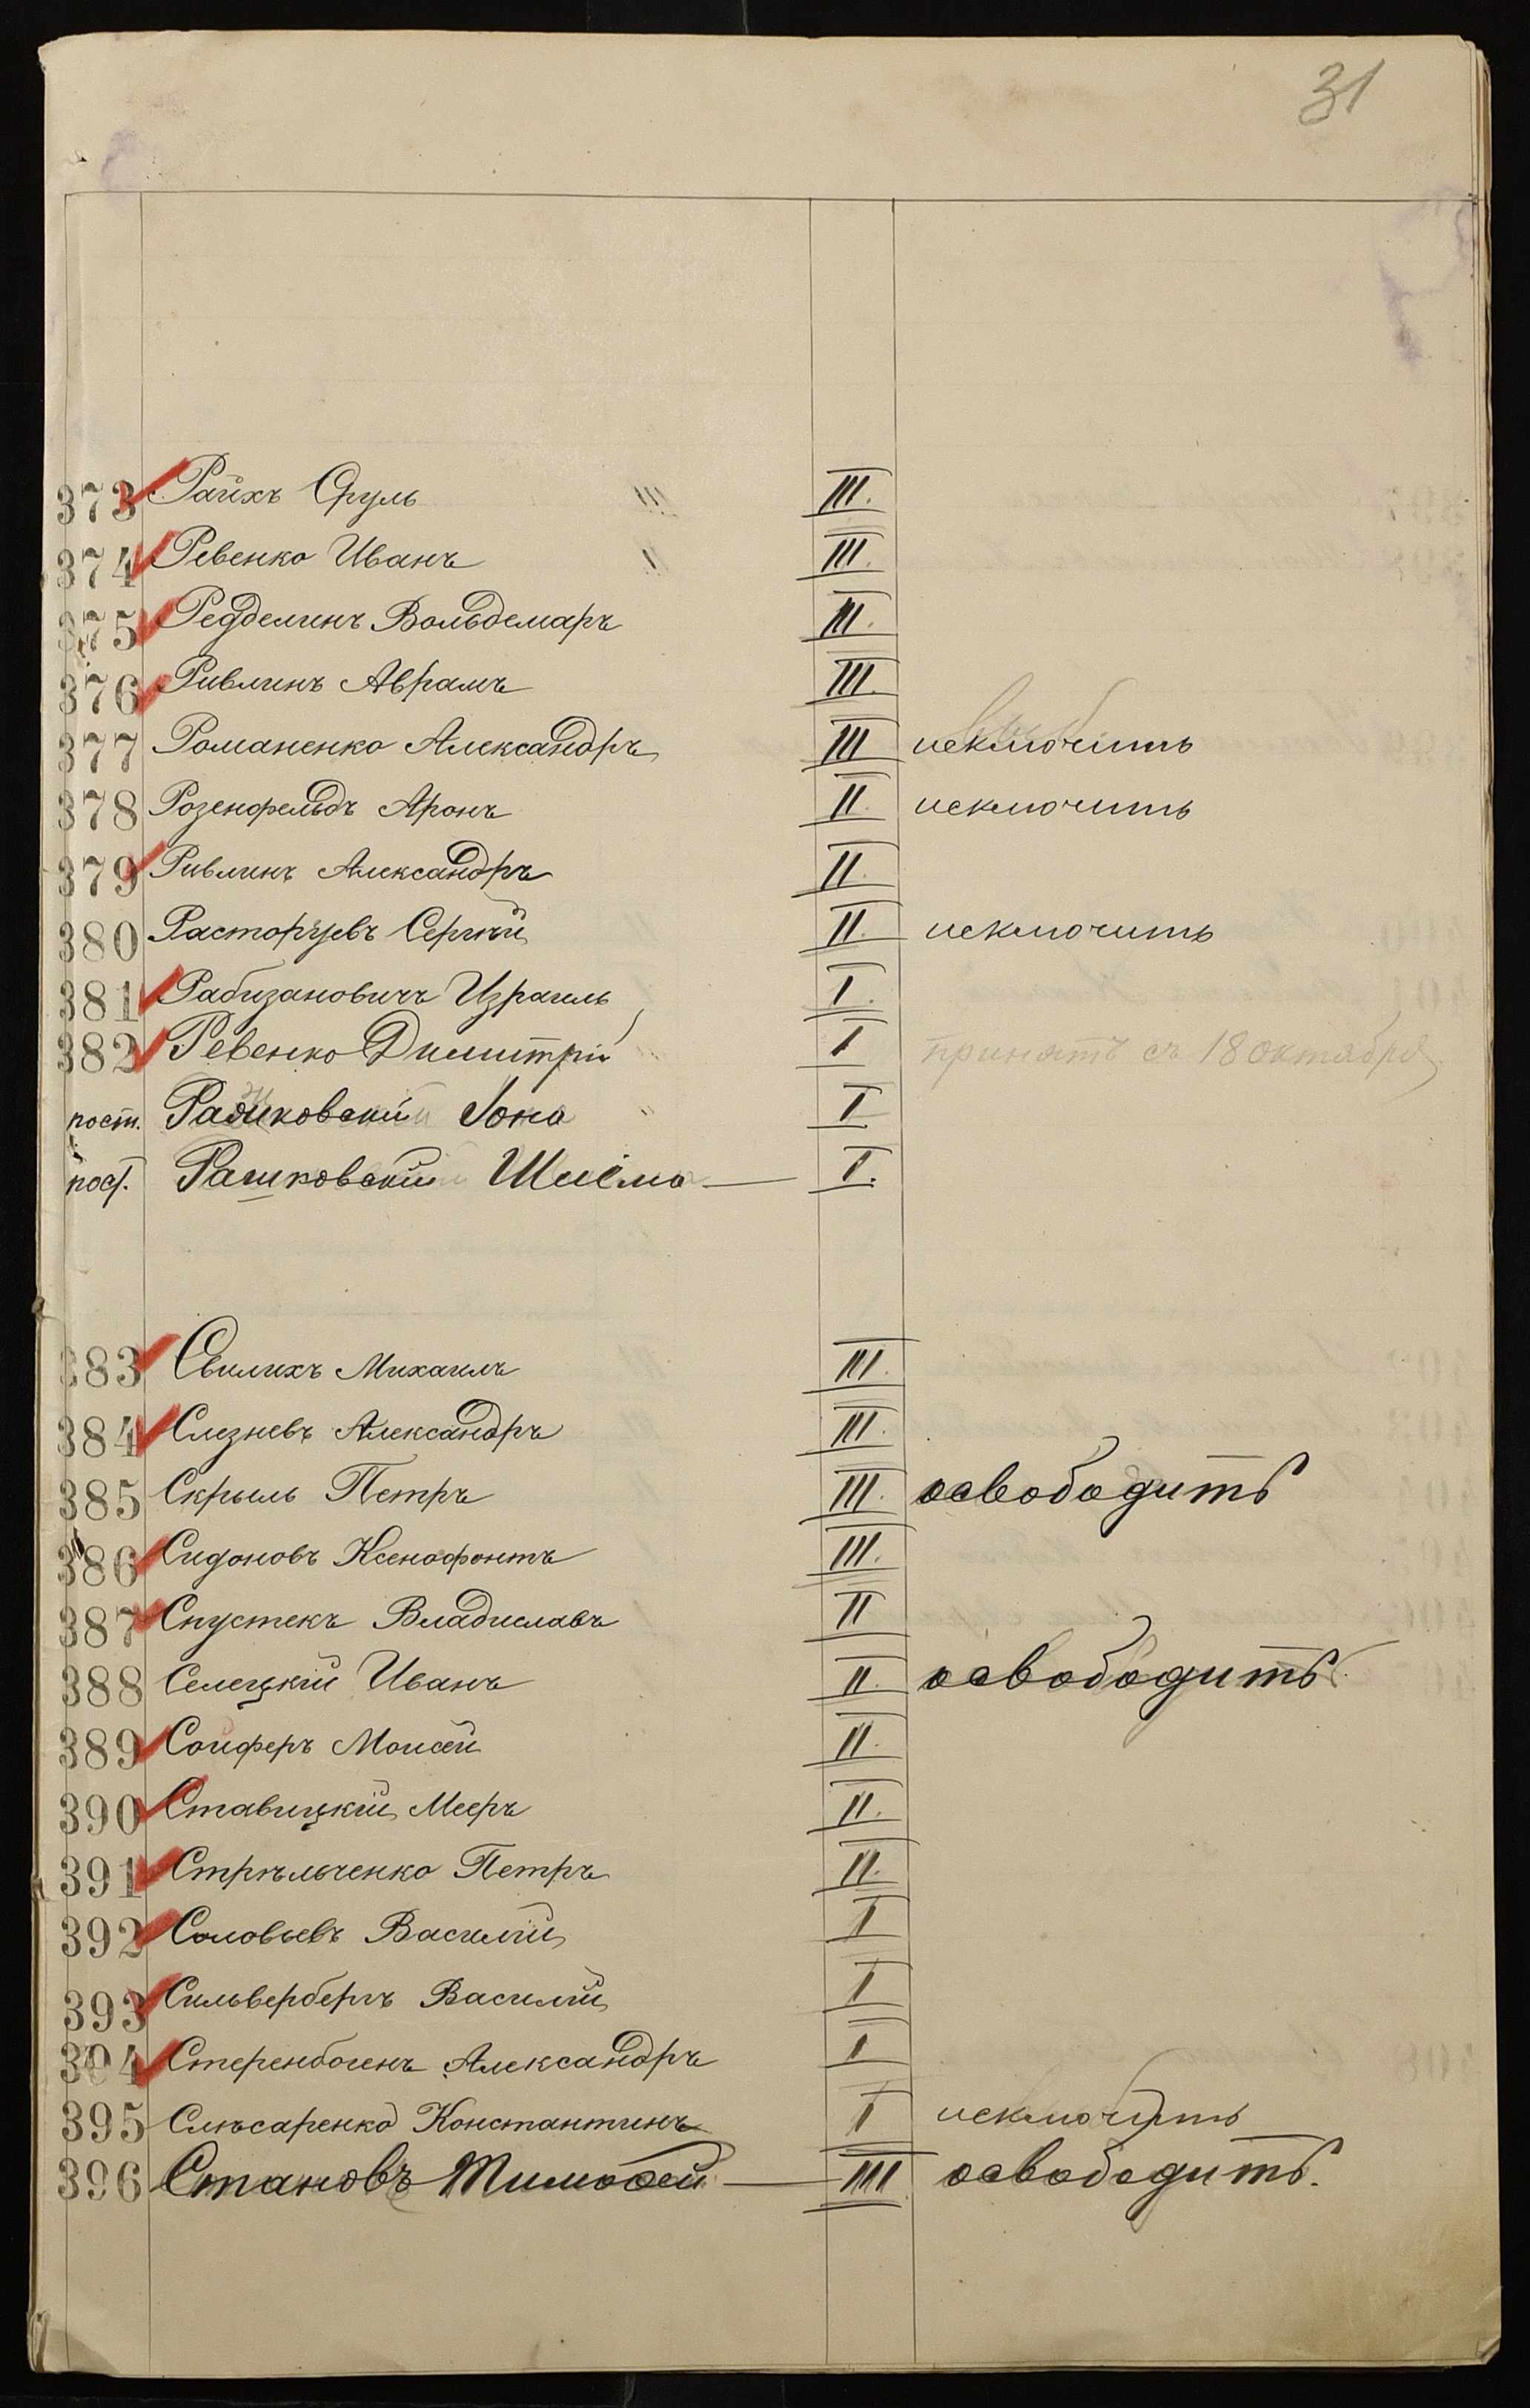 31
373 Райхъ Сруль III.
374 Ревенко Иванъ III.
375 Редделинъ Вольдемаръ III.
376 Ривлинъ Аврамъ III.
377 Романенко Александръ III исключить
378 Розенфельдъ Аронъ II. исключить
379 Ривлинъ Александръ II.
380 Расторгуевъ Сергѣй II. исключить
381 Рабизановичъ Израиль I.
382 Ревенко Димитрій I принятъ съ 18 октября
пост. Рашковскій Іона I
пост. Рашковскій Шлема I.
383 Свилихъ Михаилъ III.
384 Слезневъ Александръ III.
385 Скрыль Петръ III. освободить
386 Сидоновъ Ксенофонтъ III.
387 Спустекъ Владиславъ II
388 Селецкій Иванъ II. освободить
389 Сойферъ Моисей II.
390 Ставицкій Мееръ II.
391 Стрѣльченко Петръ II.
392 Соловьевъ Василій I
393 Сильвербергъ Василій I
394 Стеренбогенъ Александръ I
395 Слѣсаренко Константинъ I исключить
396 Становъ Тимофей III освободить.